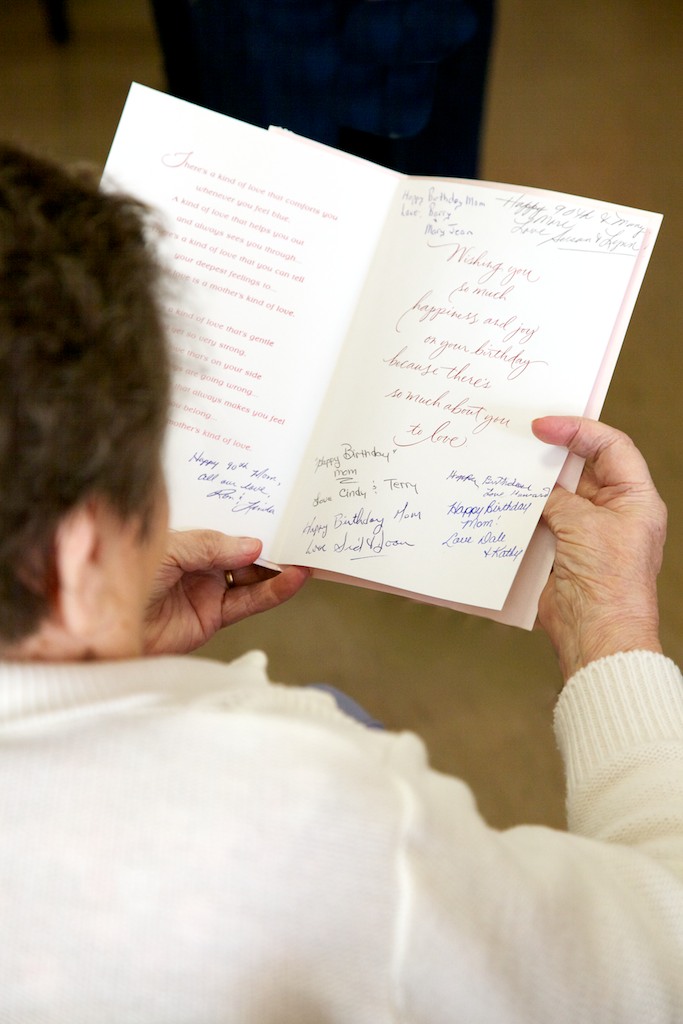 There's a kind of love that comforts you
whenever you feel blue,
A kind of love that helps you out
and always sees you through...
a kind of love that you can tell
your deepest feelings to...
love is a mother's kind of love.
kind of love that's gentle
yet so very strong,
that's on your side
are going wrong...
that always makes you feel
belong...
mother's kind of love.
Happy 90th Mom,
all our love,
Ron &
Happy Birthday Mom
Love Barry
&
Mary Jean
Happy 90th & Many
More
Love
Susan &
Wishing you
so much
happiness and joy
on your birthday
because there's
so much about you
to love
Happy Birthday
mom
Love Cindy & Terry
Happy Birthday Mom
Love Sid & Joan
Happy Birthday
Love Howard
Happy Birthday
Mom!
Love Dale
& Kathy